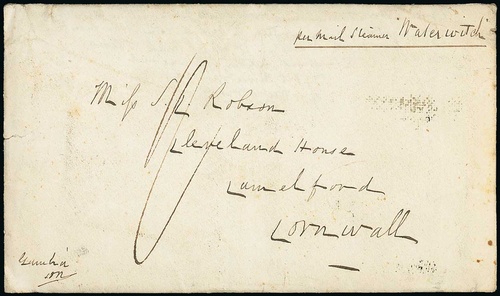 per Mail Steamer "Waterwitch"
Miss S. J. Robson
Cleveland House
Camelford
Cornwall